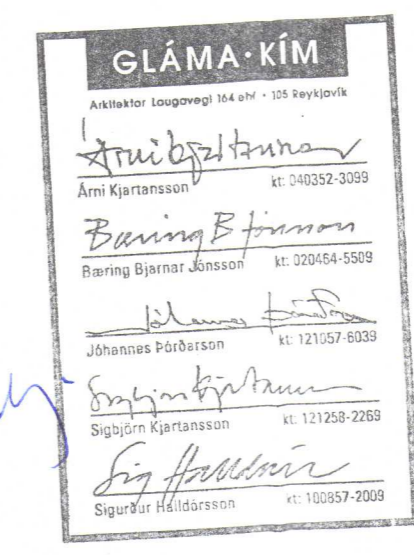 GLÁMA·KÍM
Arkitektar Laugavegi 164 ehf · 105 Reykjavík
Árni Kjartansson
Árni Kjartansson kt: 040352-3099
Bæring B Jónsson
Bæring Bjarnar Jónsson kt: 020464-5509
Jóhannes Þórðarson
Jóhannes Þórðarson kt: 121057-6039
Sigbjörn Kjartansson
Sigbjörn Kjartansson kt: 121258-2269
Sig Halldórs
Sigurður Halldórsson kt: 100857-2009